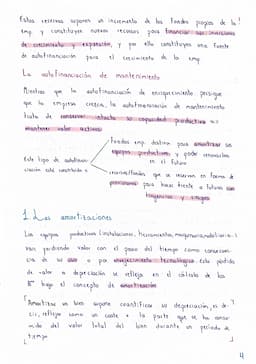 Estas reservas suponen un incremento de los fondos propios de la
emp y constituyen nuevos recursos para financiar sus inversiones
de crecimiento y expansión, y por ello constituyen una fuente
de autofinanciación para el crecimiento de la emp.
La autofinanciación de mantenimiento
Mientras que la autofinanciación de enriquecimiento persigue
que la empresa crezca, la autofinanciación de mantenimiento
trata de conservar intacta su capacidad productiva o
mantener valor activos
Este tipo de autofinan-
ciación está constituido x
fondos emp. destina para amortizar sus
equipos productivos y poder renovarlos
en el futuro
que se reservan en forma de
provisiones para hacer frente a futuras
y riesgos
1. Las amortizaciones
Los equipos productivos (instalaciones, herramientas, maquinaria, mobiliario...)
van perdiendo valor con el paso del tiempo como consecuen-
cia de su uso o por envejecimiento tecnológico. Esta pérdida
de valor o depreciación se refleja en el cálculo de los
Bº bajo el concepto de amortización
Amortizar un bien supone cuantificar su depreciación, es de-
cir, reflejar como un coste la parte que se ha consu-
mido del valor total del bien durante un periodo de
tiempo
4